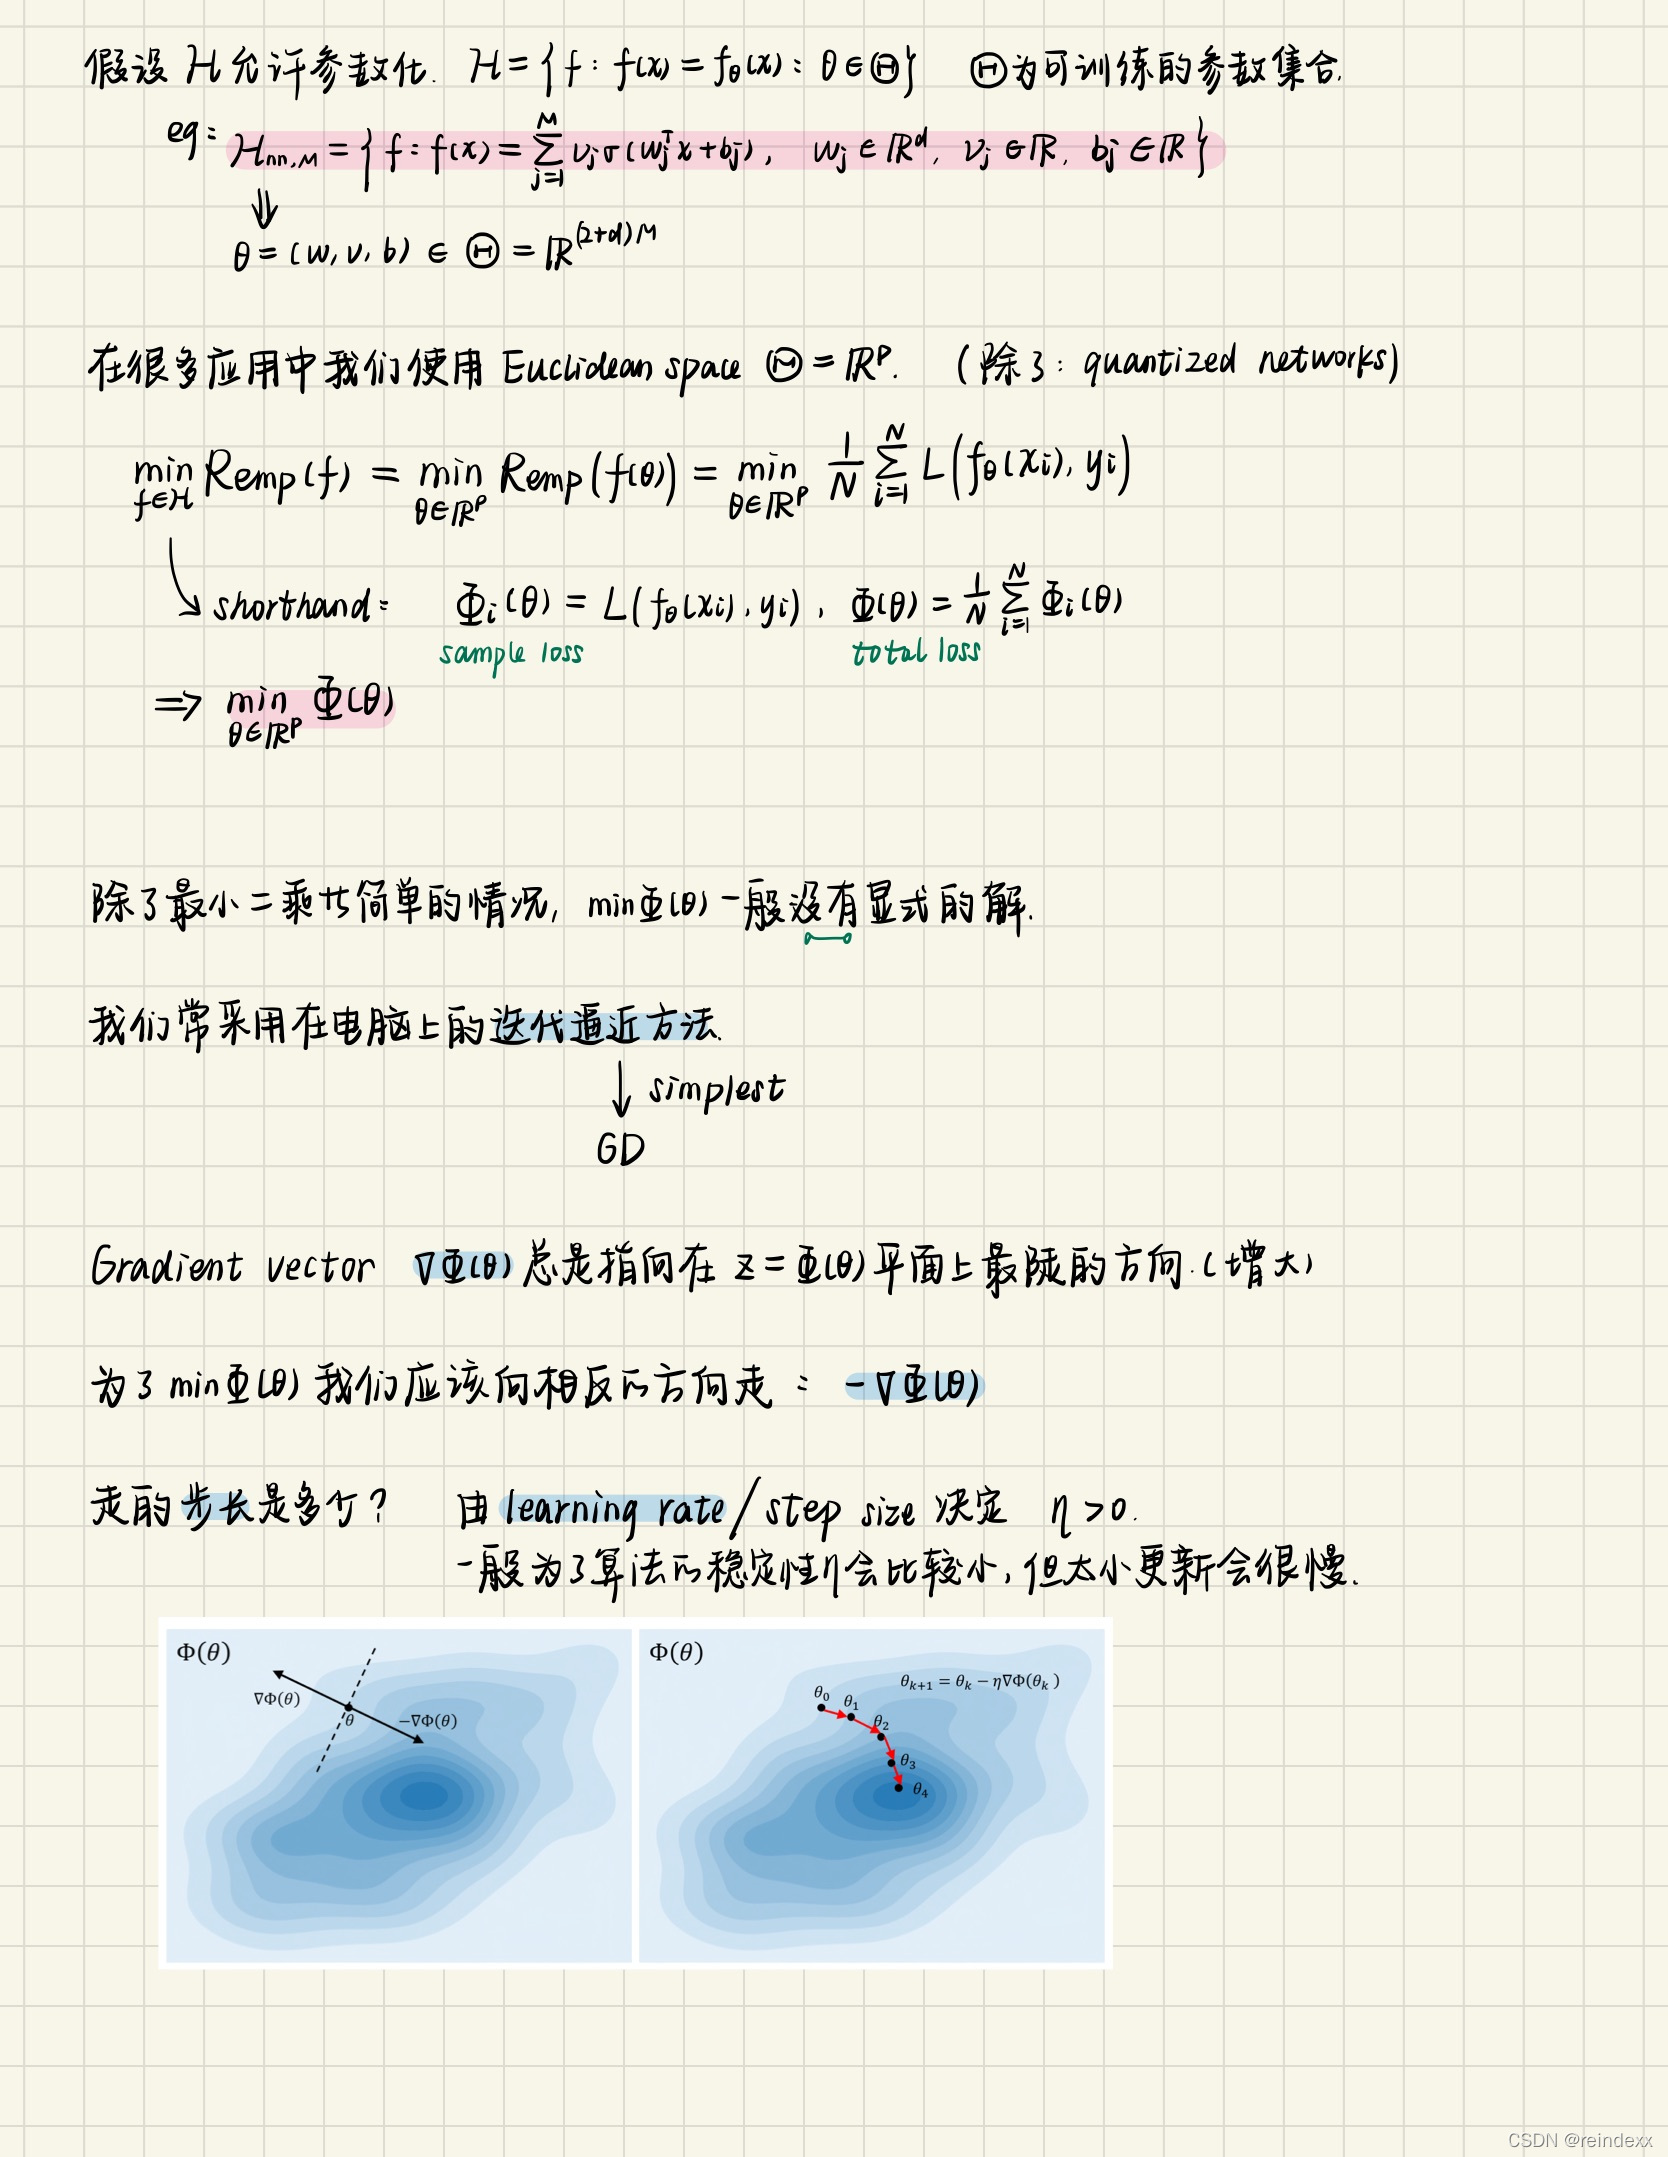 假设 H 允许参数化. H = { f : f(x) = f_θ(x) : θ ∈ Θ } Θ为可训练的参数集合.
eg: H_{nn,M} = { f : f(x) = \sum_{j=1}^{M} v_j σ(w_j^T x + b_j), w_j ∈ ℝ^d, v_j ∈ ℝ, b_j ∈ ℝ }
⇓
θ = (w, v, b) ∈ Θ = ℝ^{(2+d)M}
在很多应用中我们使用 Euclidean space Θ = ℝ^p. (除了: quantized networks)
min_{f∈H} Remp(f) = min_{θ∈ℝ^p} Remp(f(θ)) = min_{θ∈ℝ^p} \frac{1}{N} \sum_{i=1}^{N} L(f_θ(x_i), y_i)
↘ shorthand: Φ_i(θ) = L(f_θ(x_i), y_i), Φ(θ) = \frac{1}{N} \sum_{i=1}^{N} Φ_i(θ)
sample loss total loss
⇒ min_{θ∈ℝ^p} Φ(θ)
除了最小二乘等简单的情况, minΦ(θ)一般没有显式的解.
我们常采用在电脑上的迭代逼近方法.
↓ simplest
GD
Gradient vector ∇Φ(θ) 总是指向在 z = Φ(θ) 平面上最陡的方向.(增大)
为了 minΦ(θ) 我们应该向相反的方向走 : -∇Φ(θ)
走的步长是多少? 由 learning rate / step size 决定 η > 0.
一般为了算法的稳定性η会比较小, 但太小更新会很慢.
Φ(θ)
∇Φ(θ)
θ
−∇Φ(θ)
Φ(θ)
θ_{k+1} = θ_k − η∇Φ(θ_k)
θ_0
θ_1
θ_2
θ_3
θ_4
CSDN @reindexx